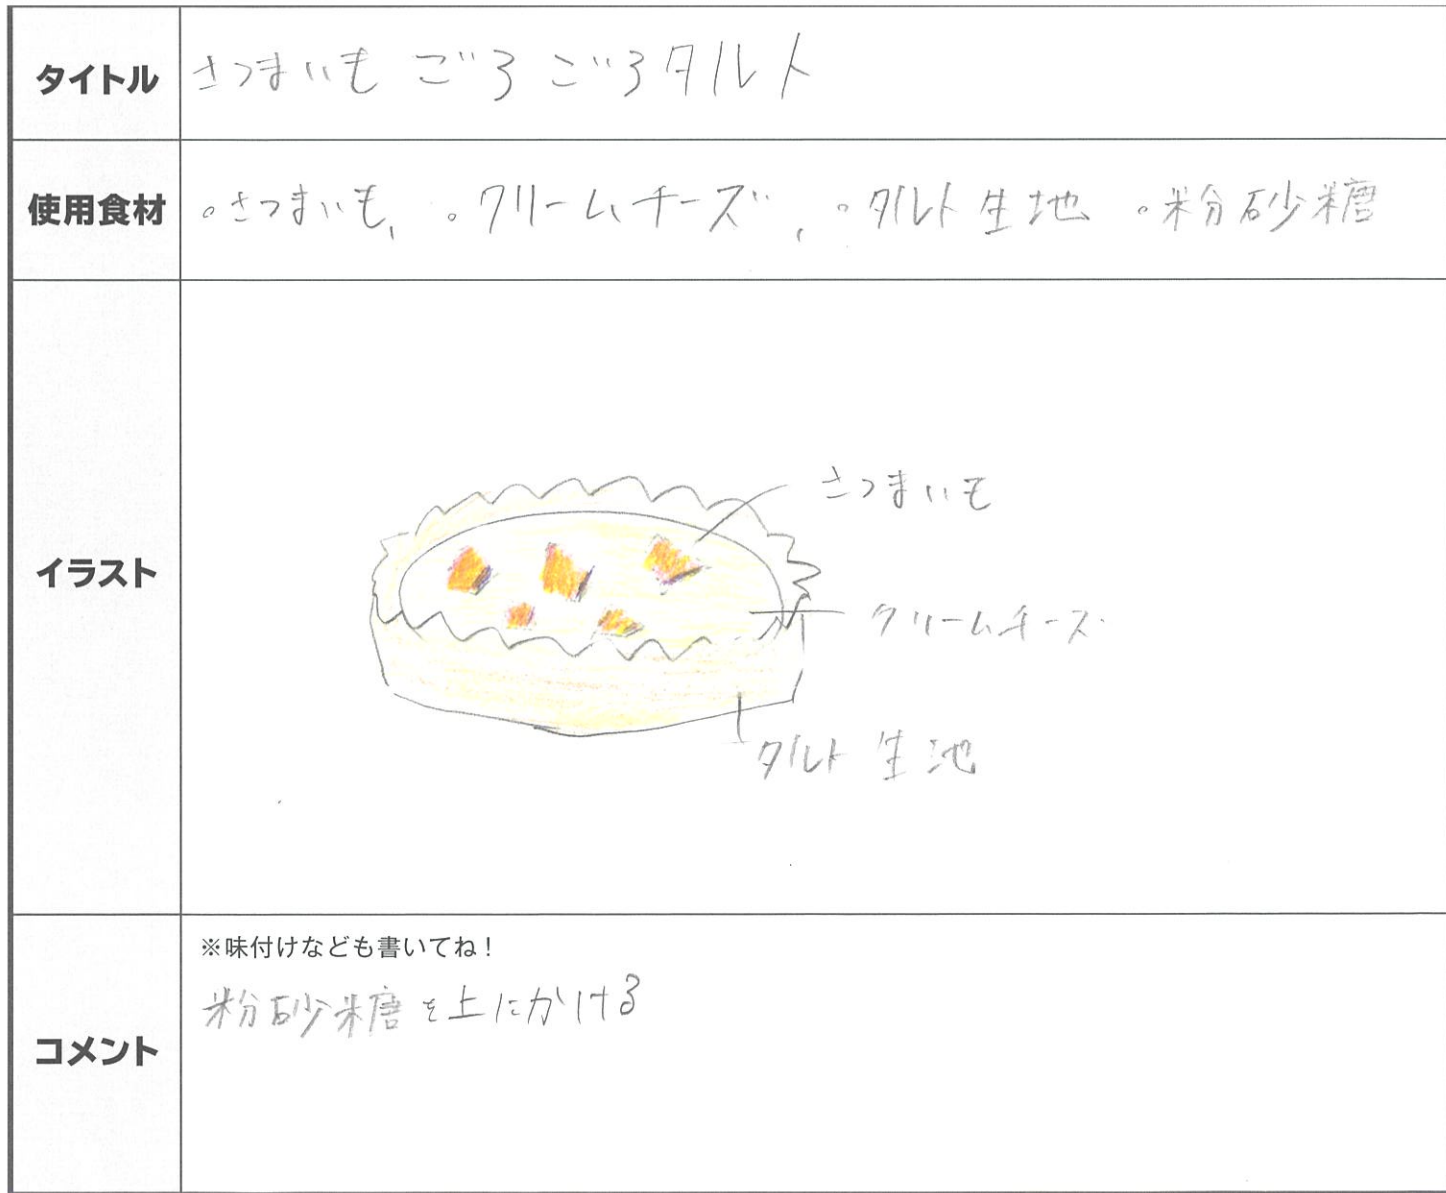 タイトル
さつまいも ごろごろタルト
使用食材
。さつまいも、 。クリームチーズ、 。タルト生地 。粉砂糖
イラスト
さつまいも
クリームチーズ
タルト生地
コメント
※味付けなども書いてね！
粉砂糖を上にかける